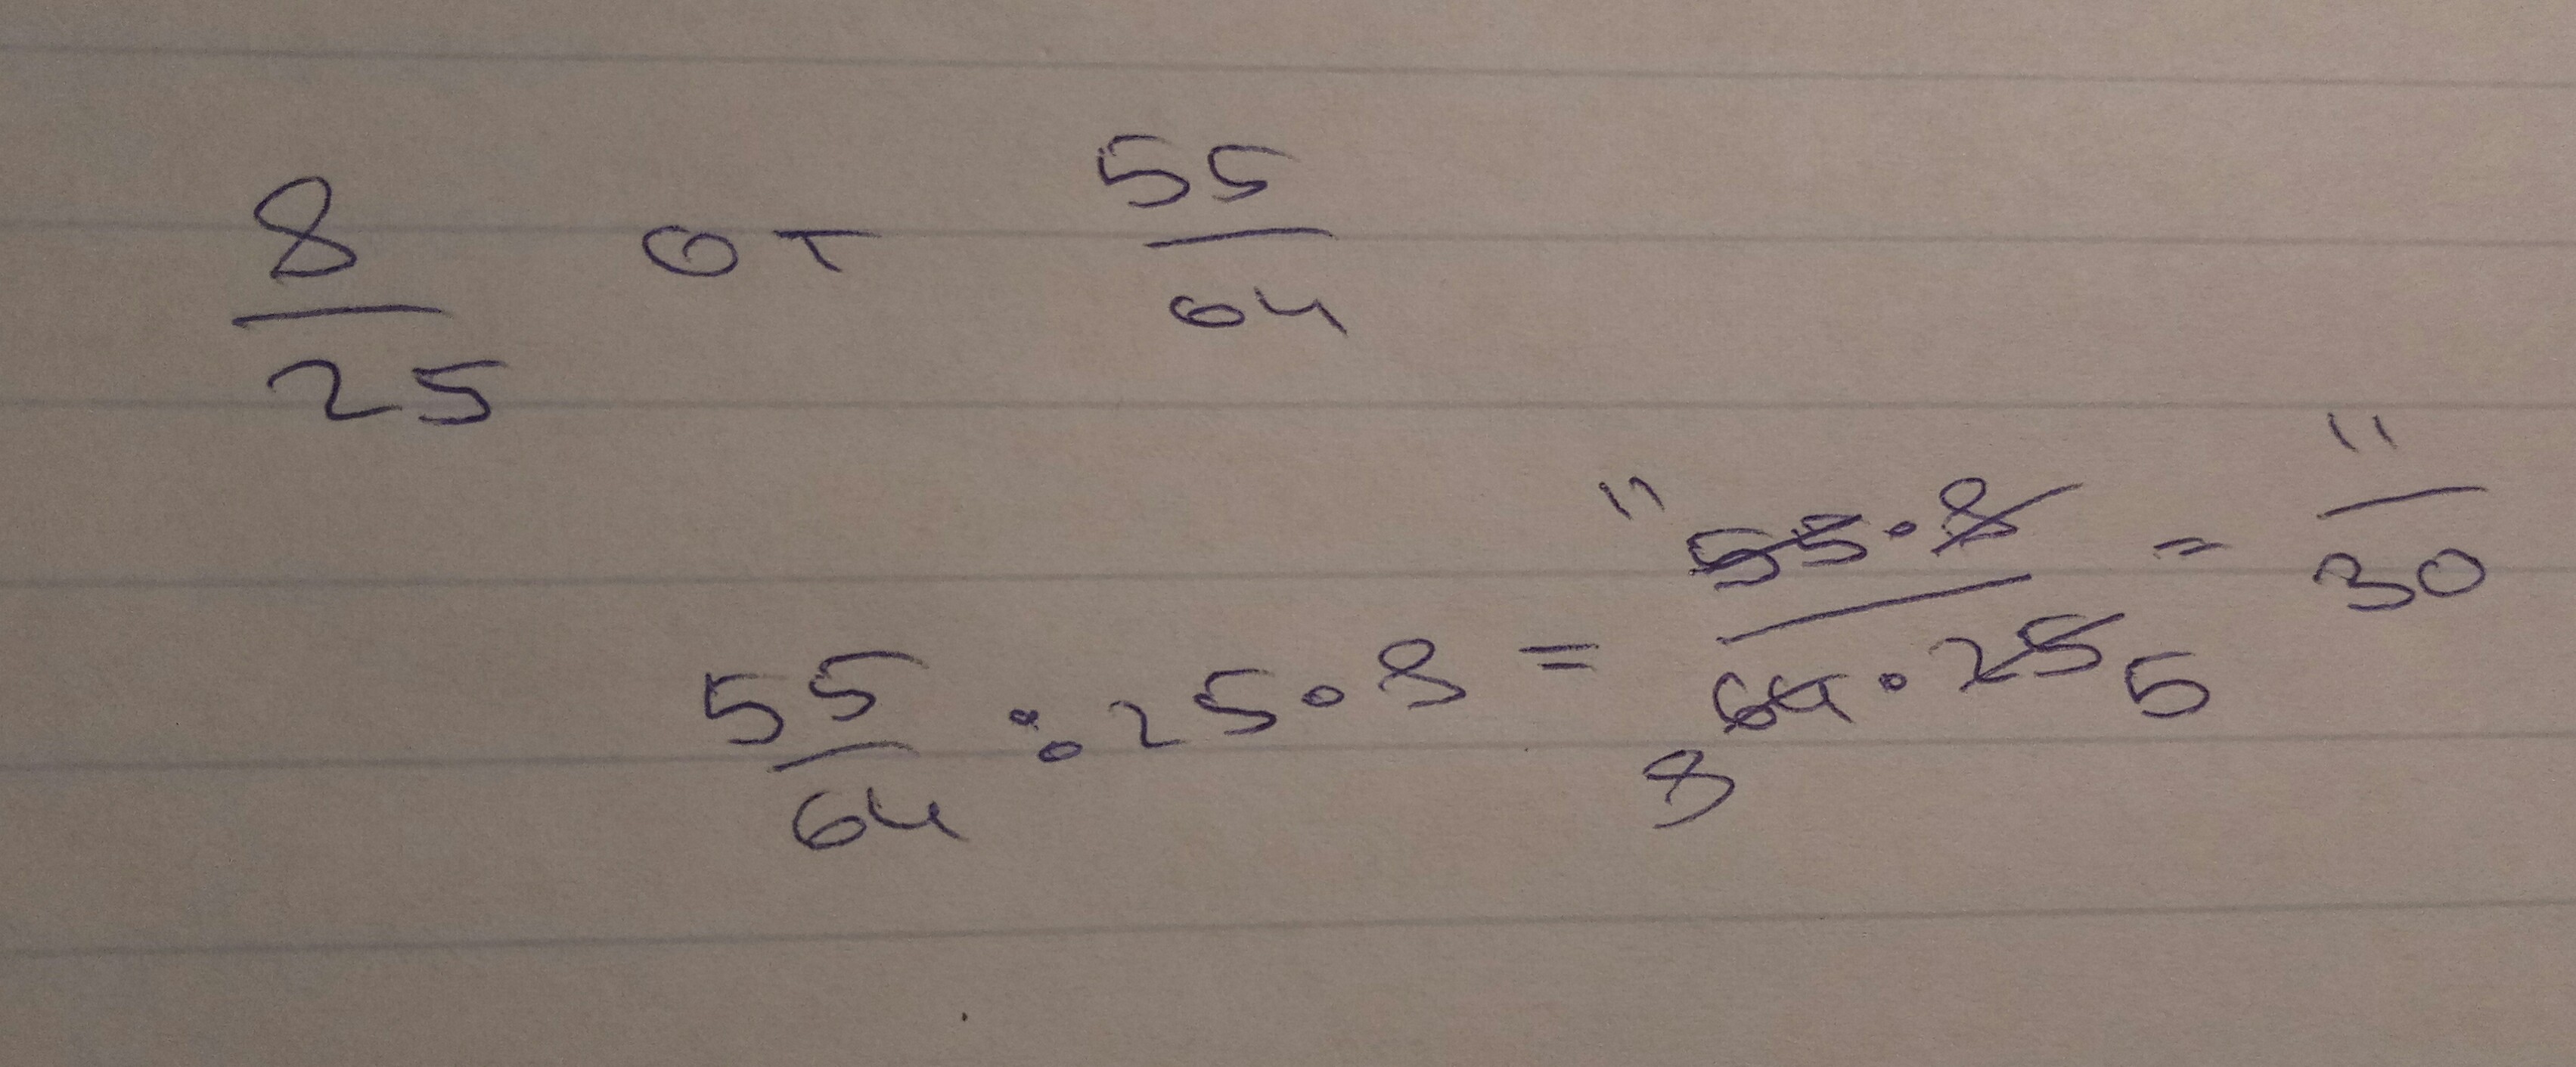 8/25 от 55/64
55/64 : 25 · 8 = 11 55·8 / 8 64 · 25 5 = 11/30